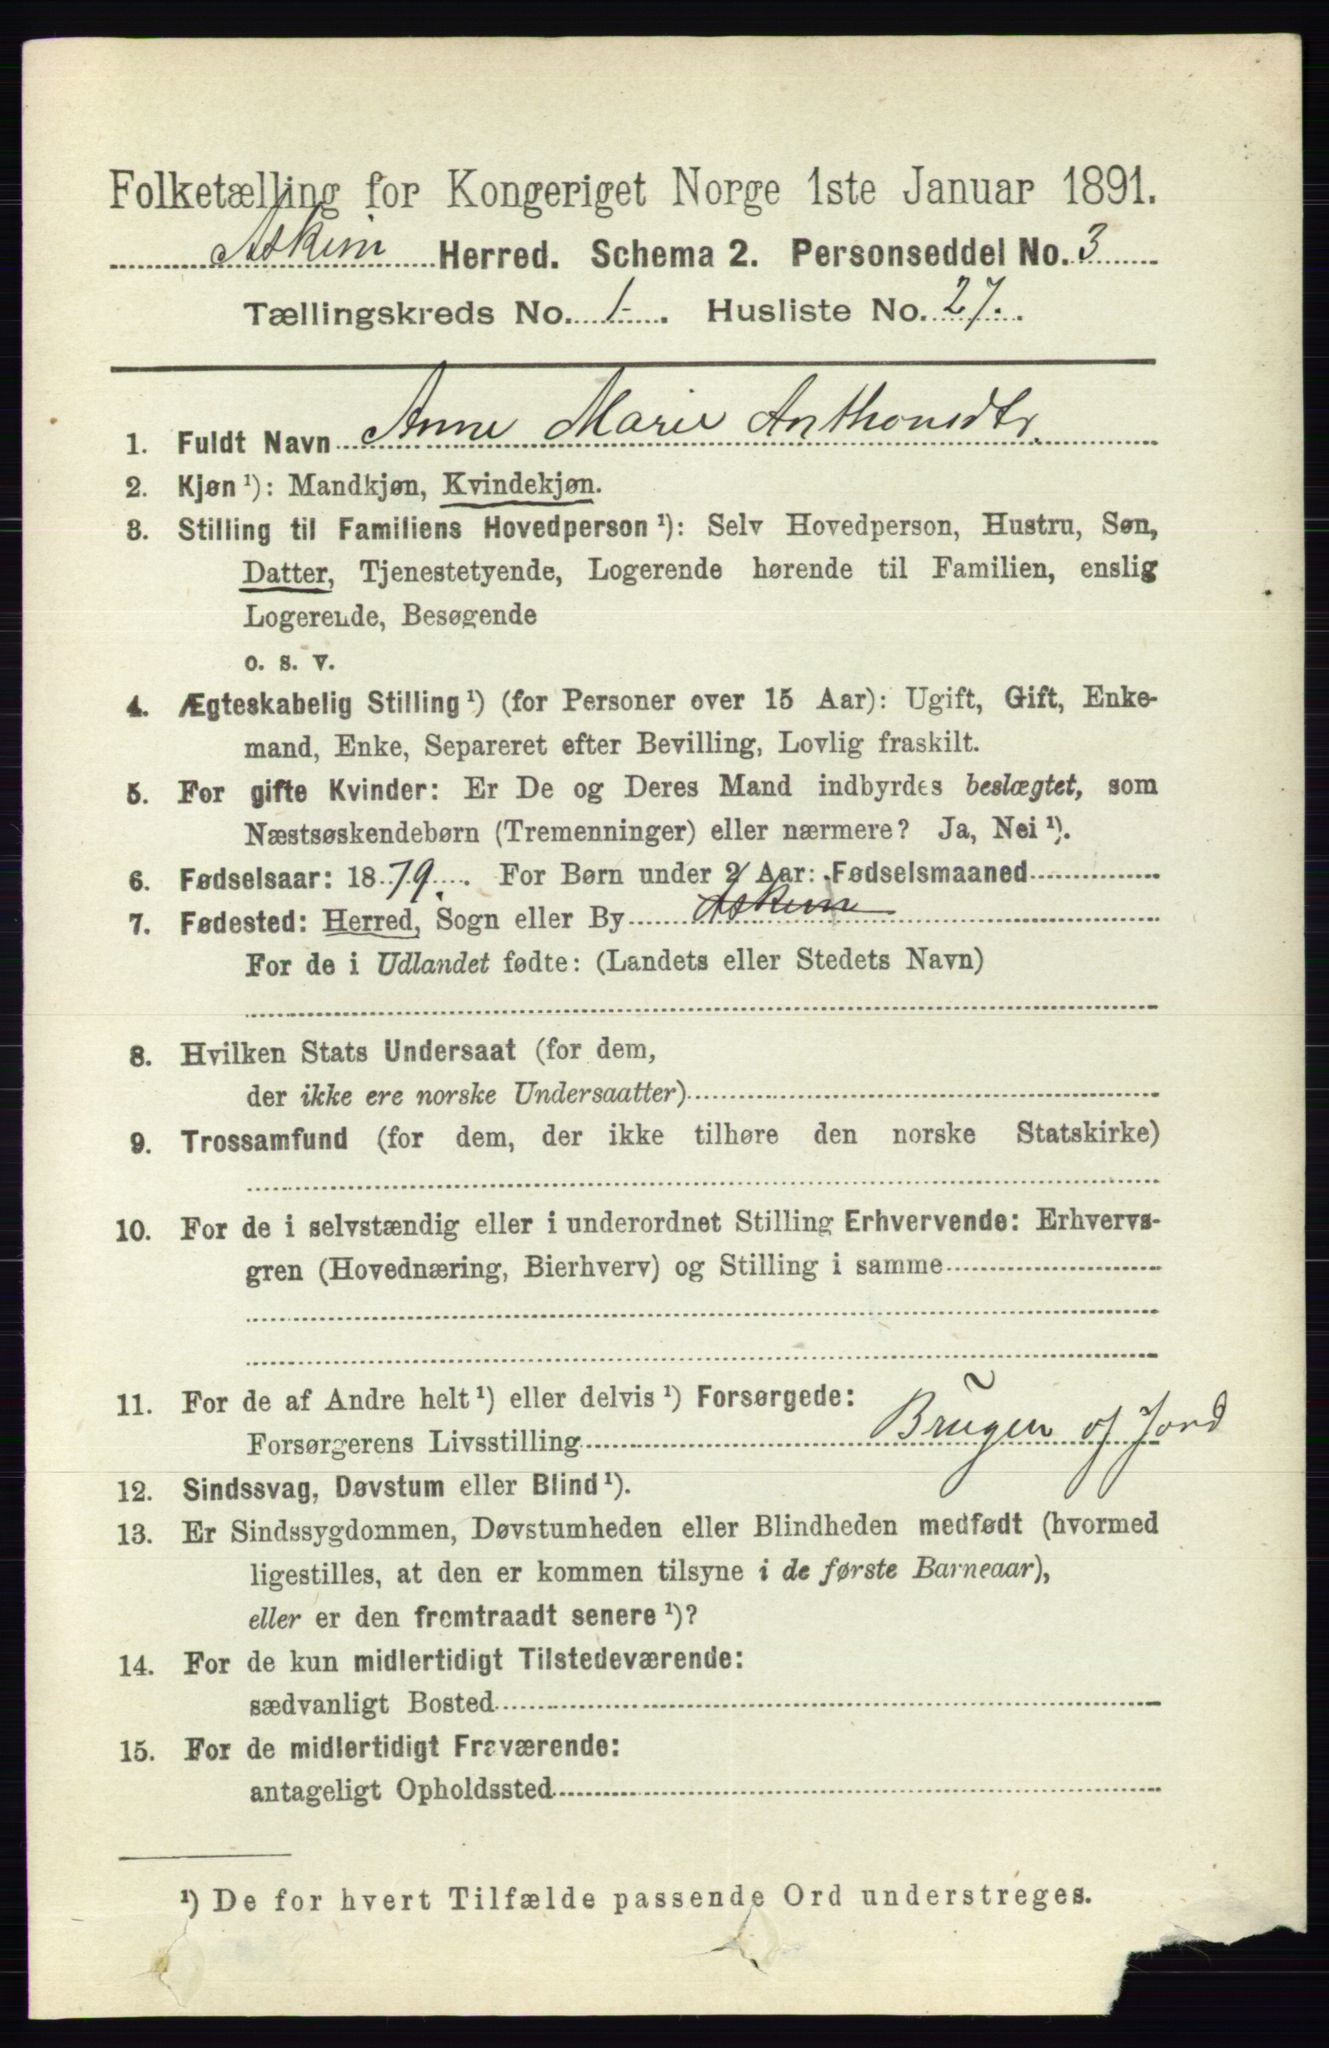 Folketælling for Kongeriget Norge 1ste Januar 1891.
Askim Herred. Schema 2. Personseddel No. 3
Tællingskreds No. 1. Husliste No. 27.
1. Fuldt Navn Anne Marie Anthonsdtr.
2. Kjøn ¹): Mandkjøn, Kvindekjøn.
3. Stilling til Familiens Hovedperson ¹): Selv Hovedperson, Hustru, Søn,
Datter, Tjenestetyende, Logerende hørende til Familien, enslig
Logerende, Besøgende
o. s. v.
4. Ægteskabelig Stilling ¹) (for Personer over 15 Aar): Ugift, Gift, Enke-
mand, Enke, Separeret efter Bevilling, Lovlig fraskilt.
5. For gifte Kvinder: Er De og Deres Mand indbyrdes beslægtet, som
Næstsøskendebørn (Tremenninger) eller nærmere? Ja, Nei ¹).
6. Fødselsaar: 1879. For Børn under 2 Aar: Fødselsmaaned
7. Fødested: Herred, Sogn eller By Askim
For de i Udlandet fødte: (Landets eller Stedets Navn)
8. Hvilken Stats Undersaat (for dem,
der ikke ere norske Undersaatter)
9. Trossamfund (for dem, der ikke tilhøre den norske Statskirke)
10. For de i selvstændig eller i underordnet Stilling Erhvervende: Erhvervs-
gren (Hovednæring, Bierhverv) og Stilling i samme
11. For de af Andre helt ¹) eller delvis ¹) Forsørgede:
Forsørgerens Livsstilling Brugen af Jord
12. Sindssvag, Døvstum eller Blind ¹).
13. Er Sindssygdommen, Døvstumheden eller Blindheden medfødt (hvormed
ligestilles, at den er kommen tilsyne i de første Barneaar),
eller er den fremtraadt senere ¹)?
14. For de kun midlertidigt Tilstedeværende:
sædvanligt Bosted
15. For de midlertidigt Fraværende:
antageligt Opholdssted
¹) De for hvert Tilfælde passende Ord understreges.